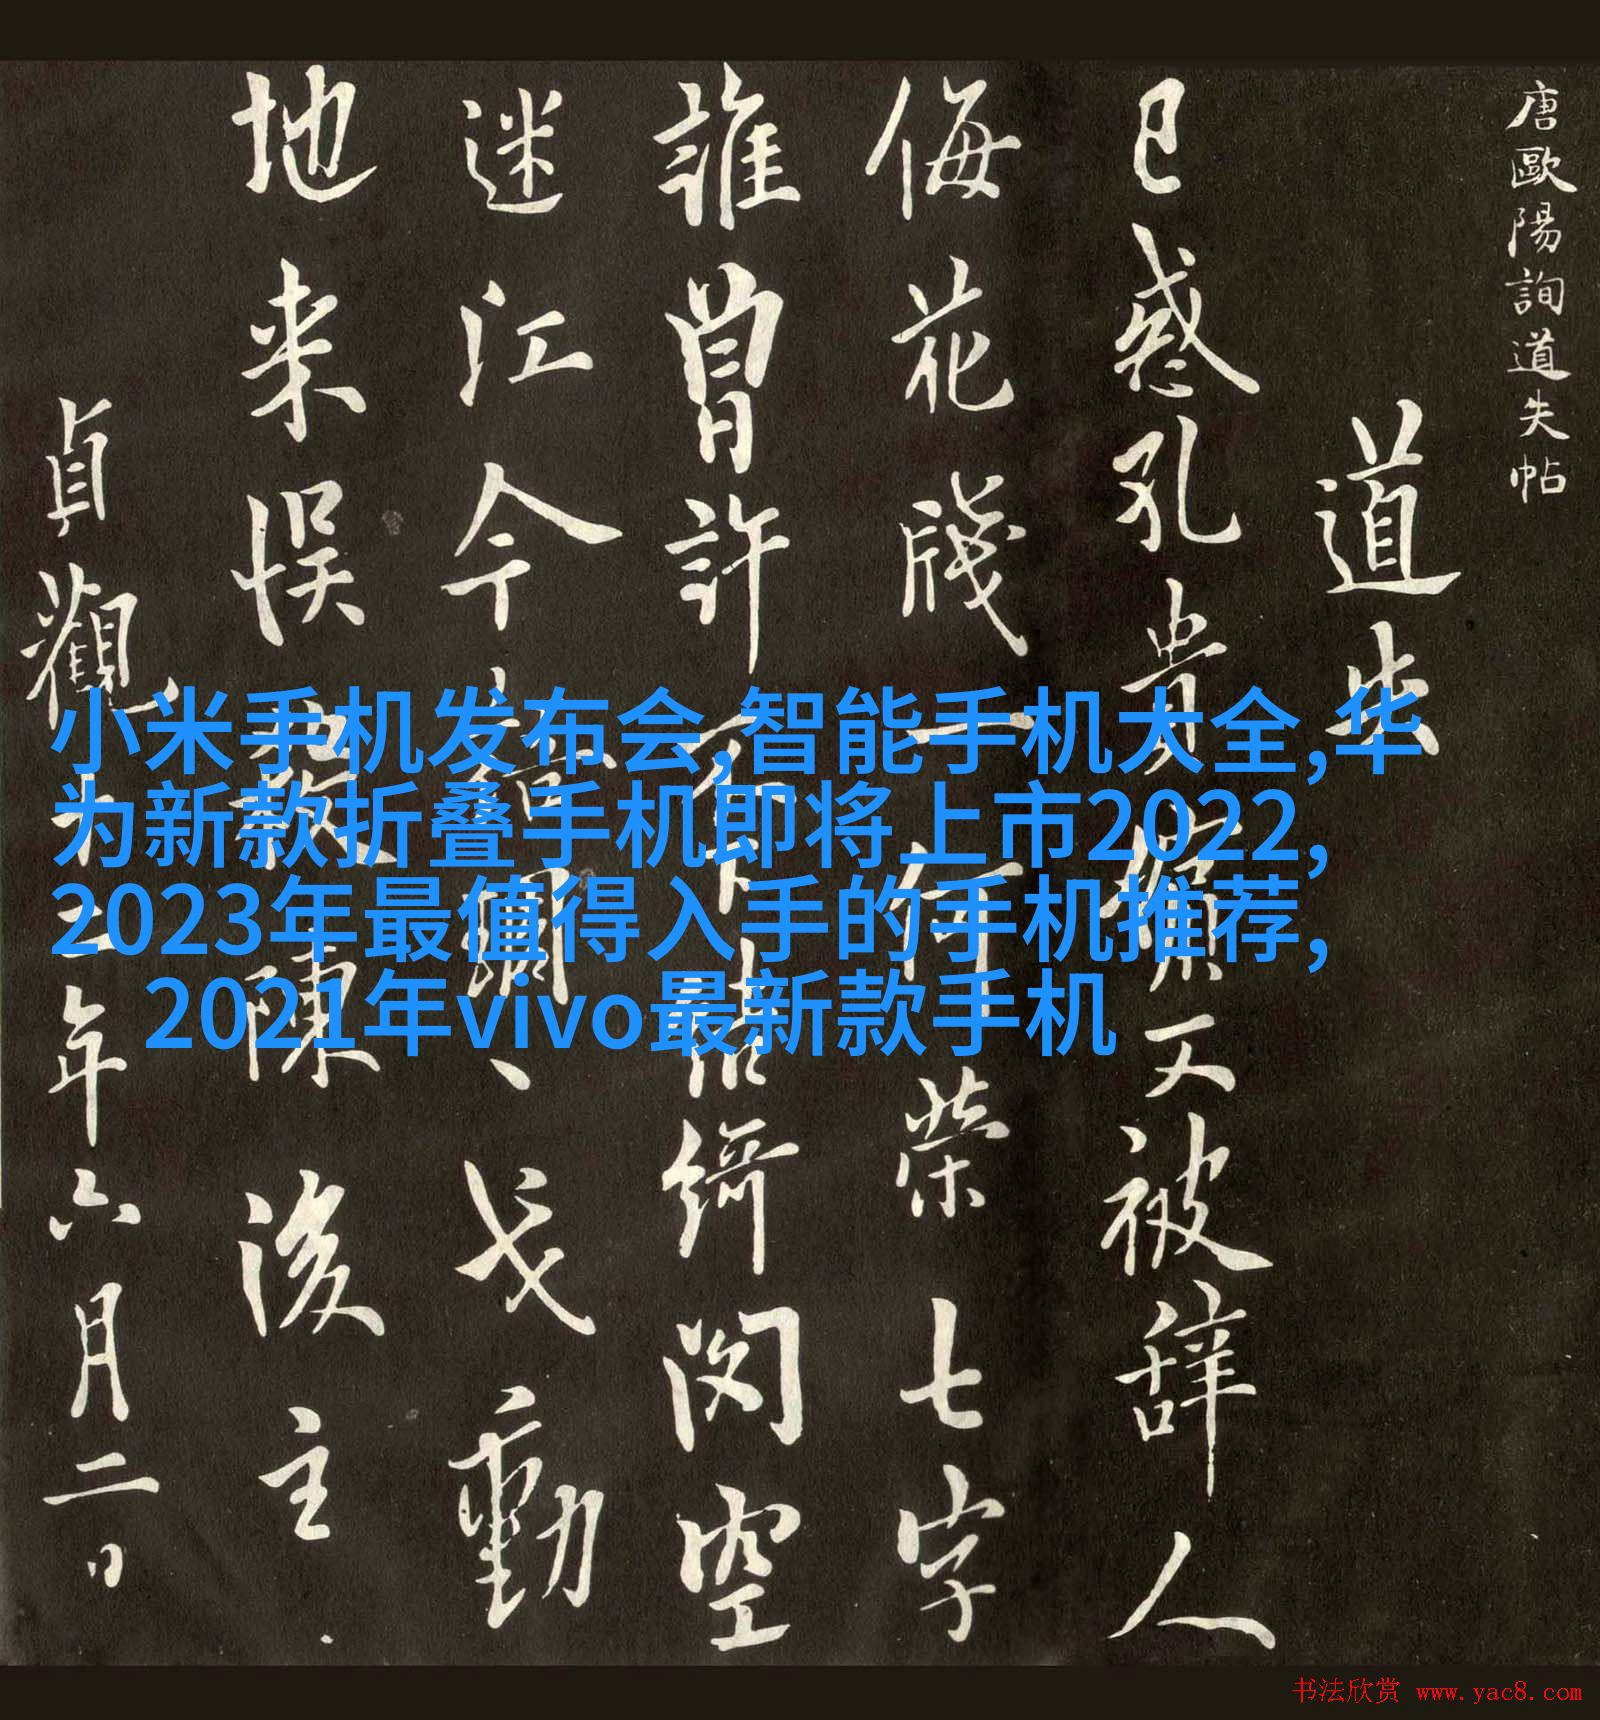 唐歐陽詢道失帖
道失
已惑孔貴嬪又被辭人
侮花牋一何榮七字
誰曾許不下結綺閣空
迷江令語戈動
地来悮殺陳後主
貞觀年六月二日
小米手机发布会,智能手机大全,华
为新款折叠手机即将上市2022,
2023年最值得入手的手机推荐,
2021年vivo最新款手机
书法欣赏 www.yac8.com